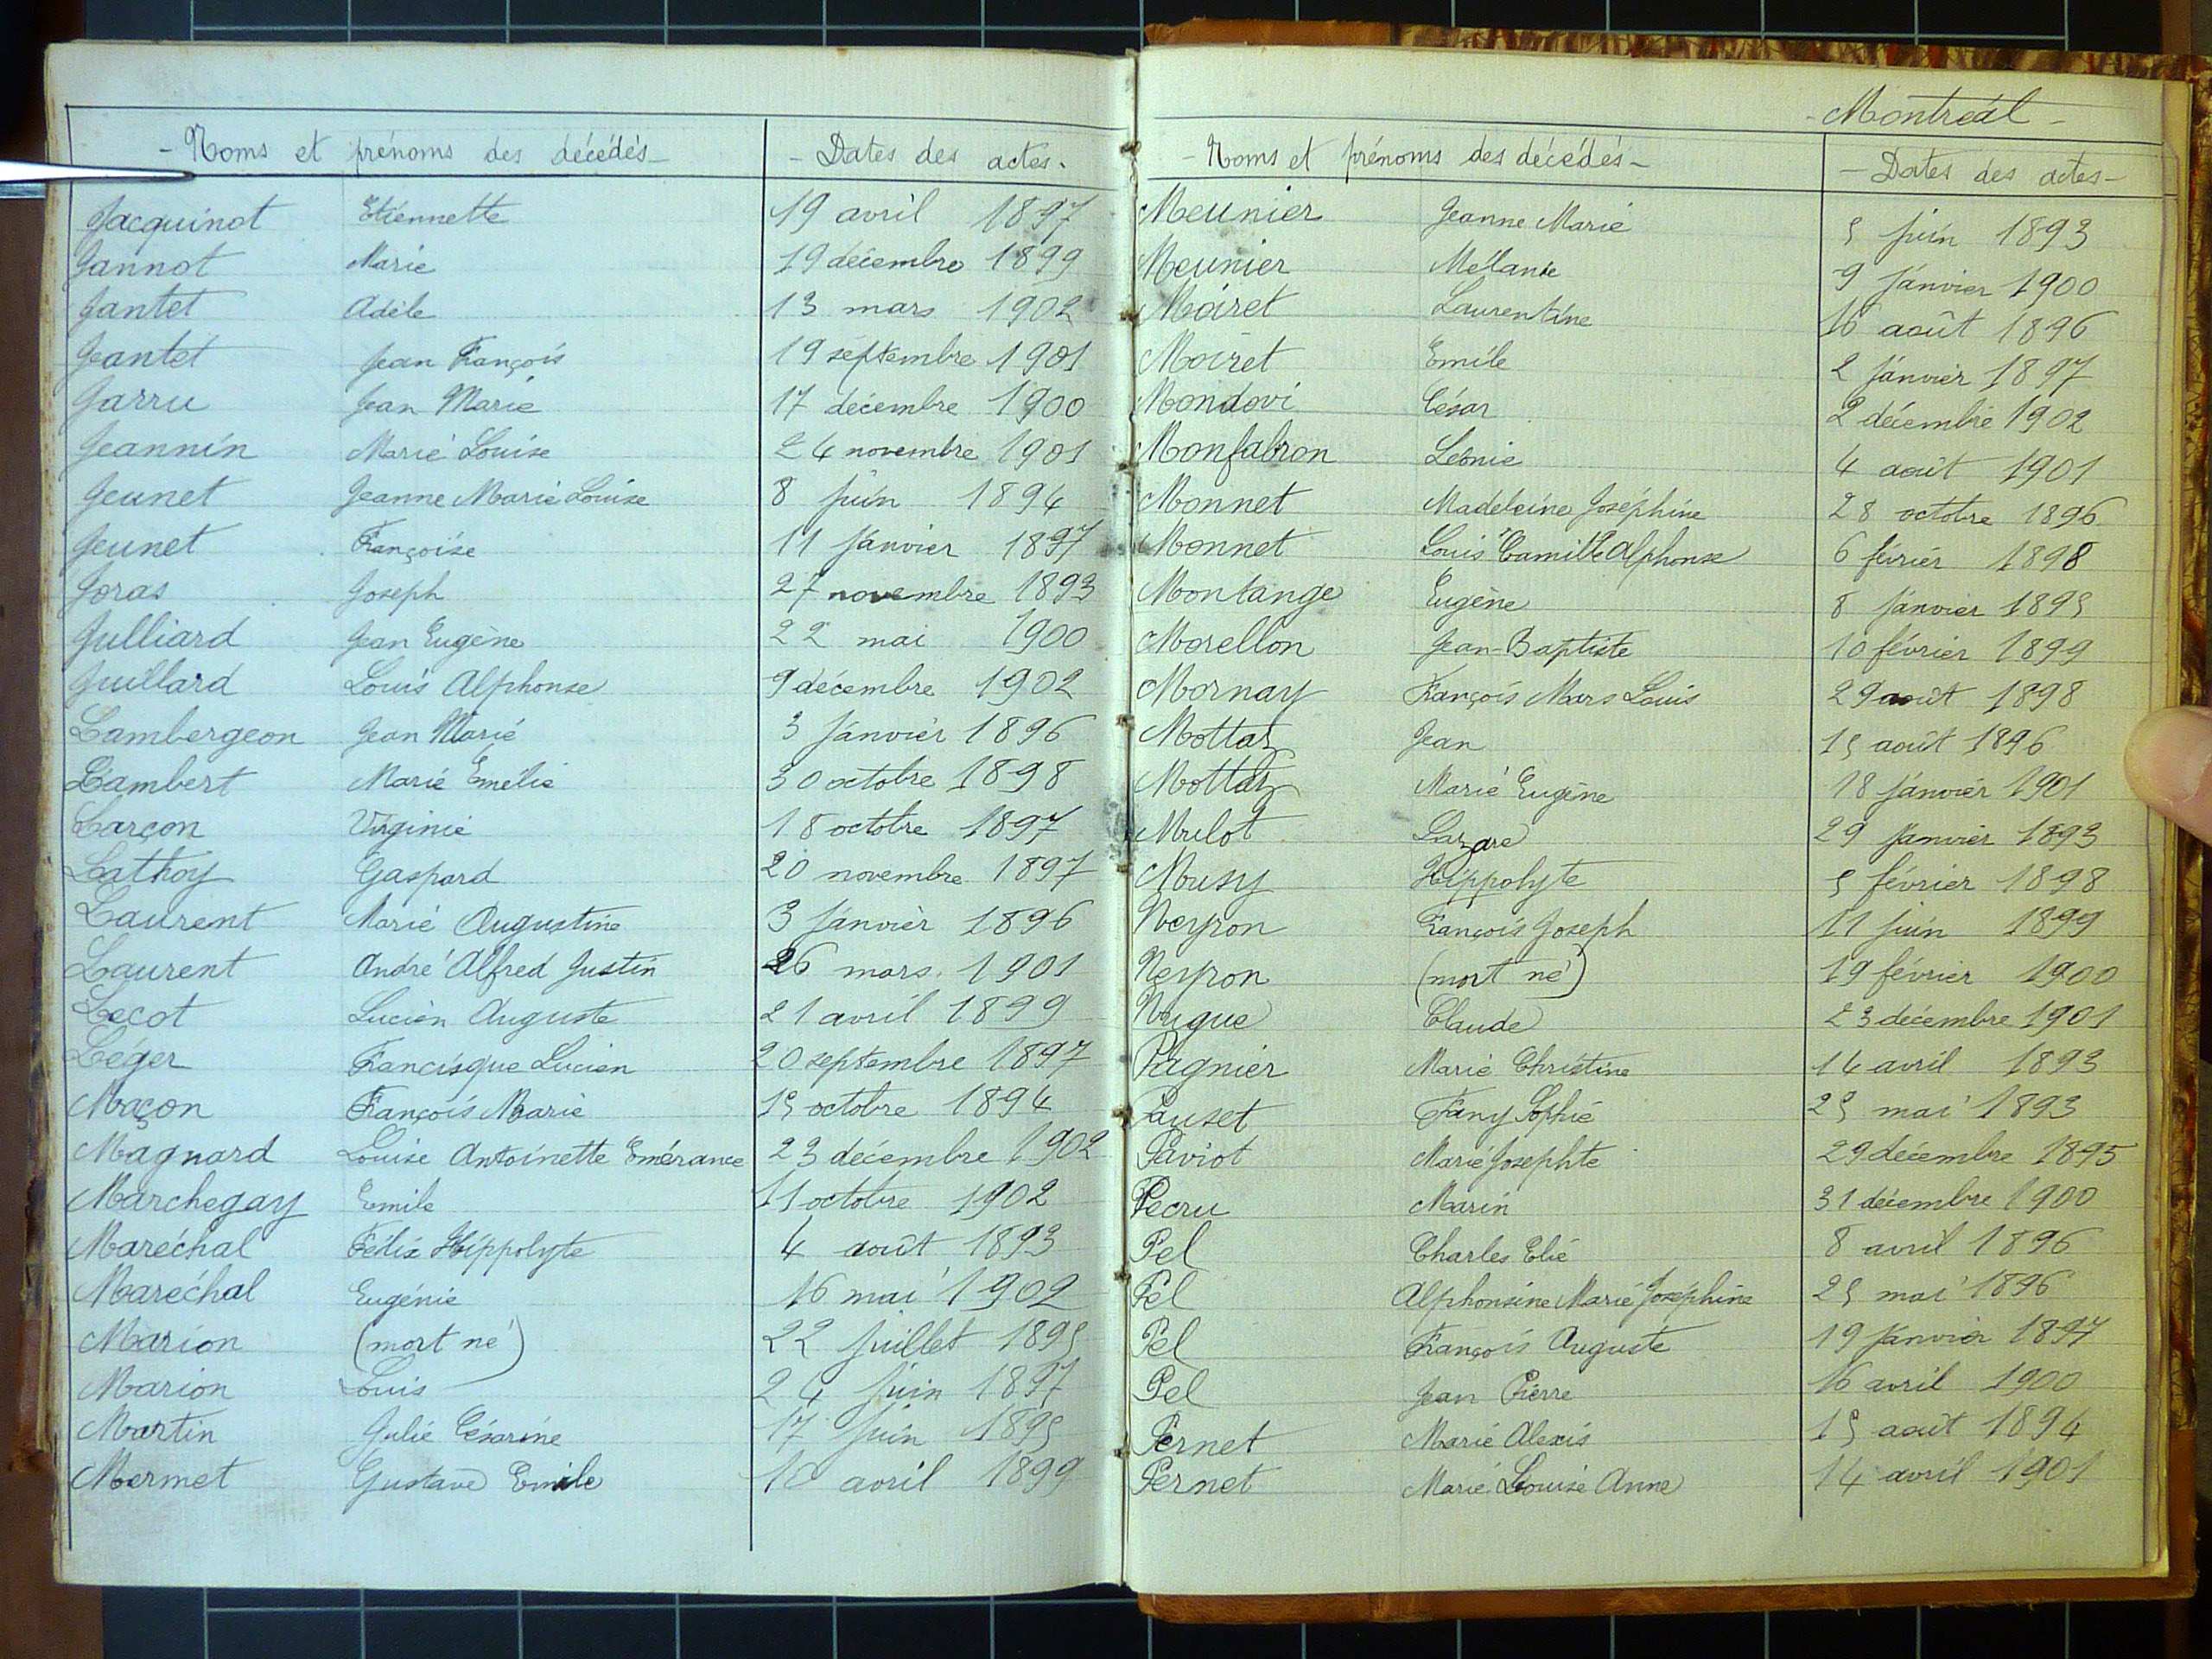 - Noms et prénoms des décédés - - Dates des actes -
Jacquinot Etiennette 19 avril 1897
Jannot Marie 19 décembre 1899
Jantet Adèle 13 mars 1902
Jeantet Jean François 19 septembre 1901
Jarru Jean Marie 17 décembre 1900
Jeannin Marie Louise 24 novembre 1901
Jeunet Jeanne Marie Louise 8 juin 1894
Jeunet Françoise 11 janvier 1897
Joras Joseph 27 novembre 1893
Julliard Jean Eugène 22 mai 1900
Juillard Louis Alphonse 9 décembre 1902
Lambergeon Jean Marie 3 janvier 1896
Lambert Marie Emélie 30 octobre 1898
Larçon Virginie 18 octobre 1897
Lathoy Gaspard 20 novembre 1897
Laurent Marie Augustine 3 janvier 1896
Laurent André Alfred Justin 26 mars 1901
Lecot Lucien Auguste 21 avril 1899
Léger Francisque Lucien 20 septembre 1897
Maçon François Marie 15 octobre 1894
Magnard Louise Antoinette Emérance 23 décembre 1902
Marchegay Emile 11 octobre 1902
Maréchal Félix Hippolyte 4 août 1893
Maréchal Eugénie 16 mai 1902
Marion (mort né) 22 juillet 1895
Marion Louis 24 juin 1897
Martin Julie Césarine 17 juin 1895
Mermet Gustave Emile 10 avril 1899
- Montréal -
- Noms et prénoms des décédés - - Dates des actes -
Meunier Jeanne Marie 5 juin 1893
Meunier Mélanie 9 janvier 1900
Moiret Laurentine 16 août 1896
Moiret Emile 2 janvier 1897
Mondovi César 2 décembre 1902
Monfabron Léonie 4 août 1901
Monnet Madeleine Joséphine 28 octobre 1896
Monnet Louis Camille Alphonse 6 février 1898
Montange Eugène 8 janvier 1895
Morellon Jean-Baptiste 10 février 1899
Mornay François Mars Louis 29 août 1898
Mottaz Jean 15 août 1896
Mottaz Marie Eugène 18 janvier 1901
Mulot Lazare 29 janvier 1893
Musy Hippolyte 5 février 1898
Neyron François Joseph 11 juin 1899
Neyron (mort né) 19 février 1900
Nugue Claude 23 décembre 1901
Pagnier Marie Christine 14 avril 1893
Pauset Fany Sophie 25 mai 1893
Paviot Marie Josephte 29 décembre 1895
Pecru Marin 31 décembre 1900
Pel Charles Elie 8 avril 1896
Pel Alphonsine Marie Joséphine 25 mai 1896
Pel François Auguste 19 janvier 1897
Pel Jean Pierre 16 avril 1900
Pernet Marie Alexis 15 août 1894
Pernet Marie Louise Anne 14 avril 1901